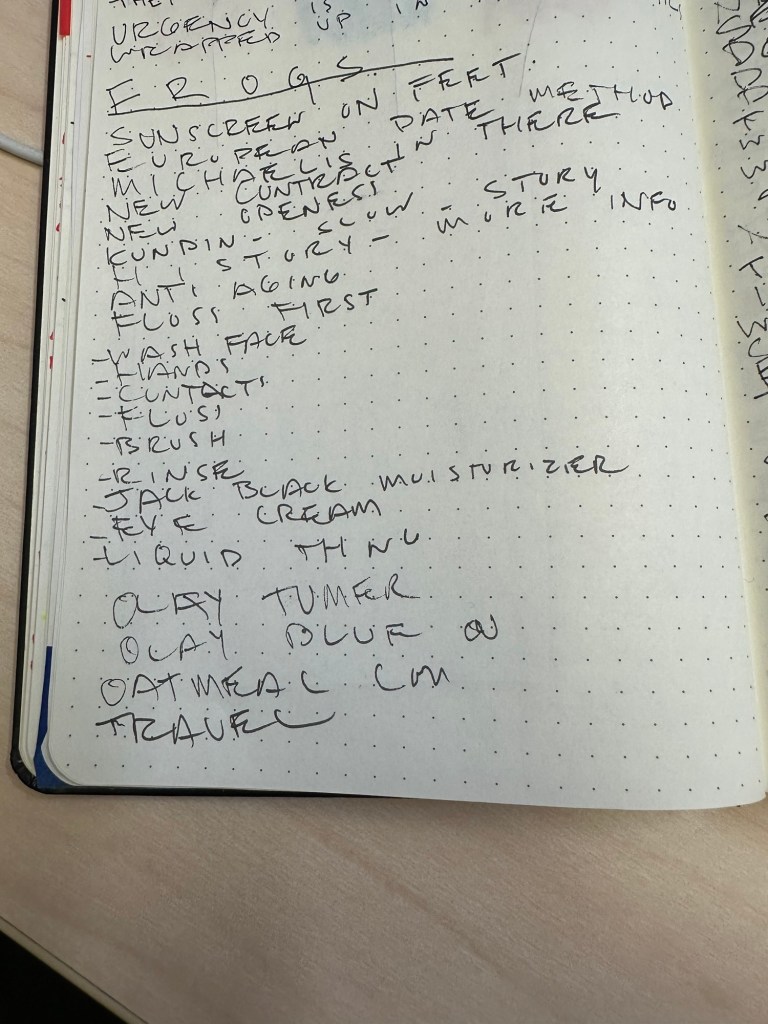 URGENCY IS
WRAPPED UP IN
FROGS
SUNSCREEN ON FEET
EUROPEAN DATE METHOD
MICHAELIS IN THERE
NEW CONTRACT
NEW OPENESS
SLOW - STORY
STORY - MORE INFO
ANTI AGING
FLOSS FIRST
-WASH FACE
-HANDS
-CONTACTS
-FLOSS
-BRUSH
-RINSE
-JACK BLACK MOISTURIZER
-EYE CREAM
-LIQUID THING
OLAY
OLAY BLUE
OATMEAL
TRAVEL